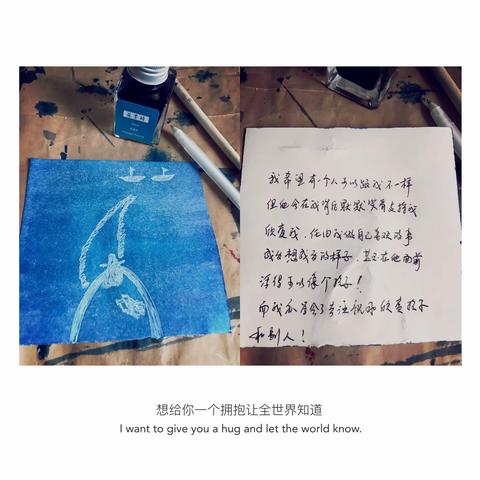 我希望有一个人可以跟我不一样
但他会在我背后默默笑着支持我
欣赏我，任由我做自己喜欢的事
成为想成为的样子，甚至在他面前
活得可以像个孩子！
而我 会了关注祝福欣赏孩子
和别人！
想给你一个拥抱让全世界知道
I want to give you a hug and let the world know.